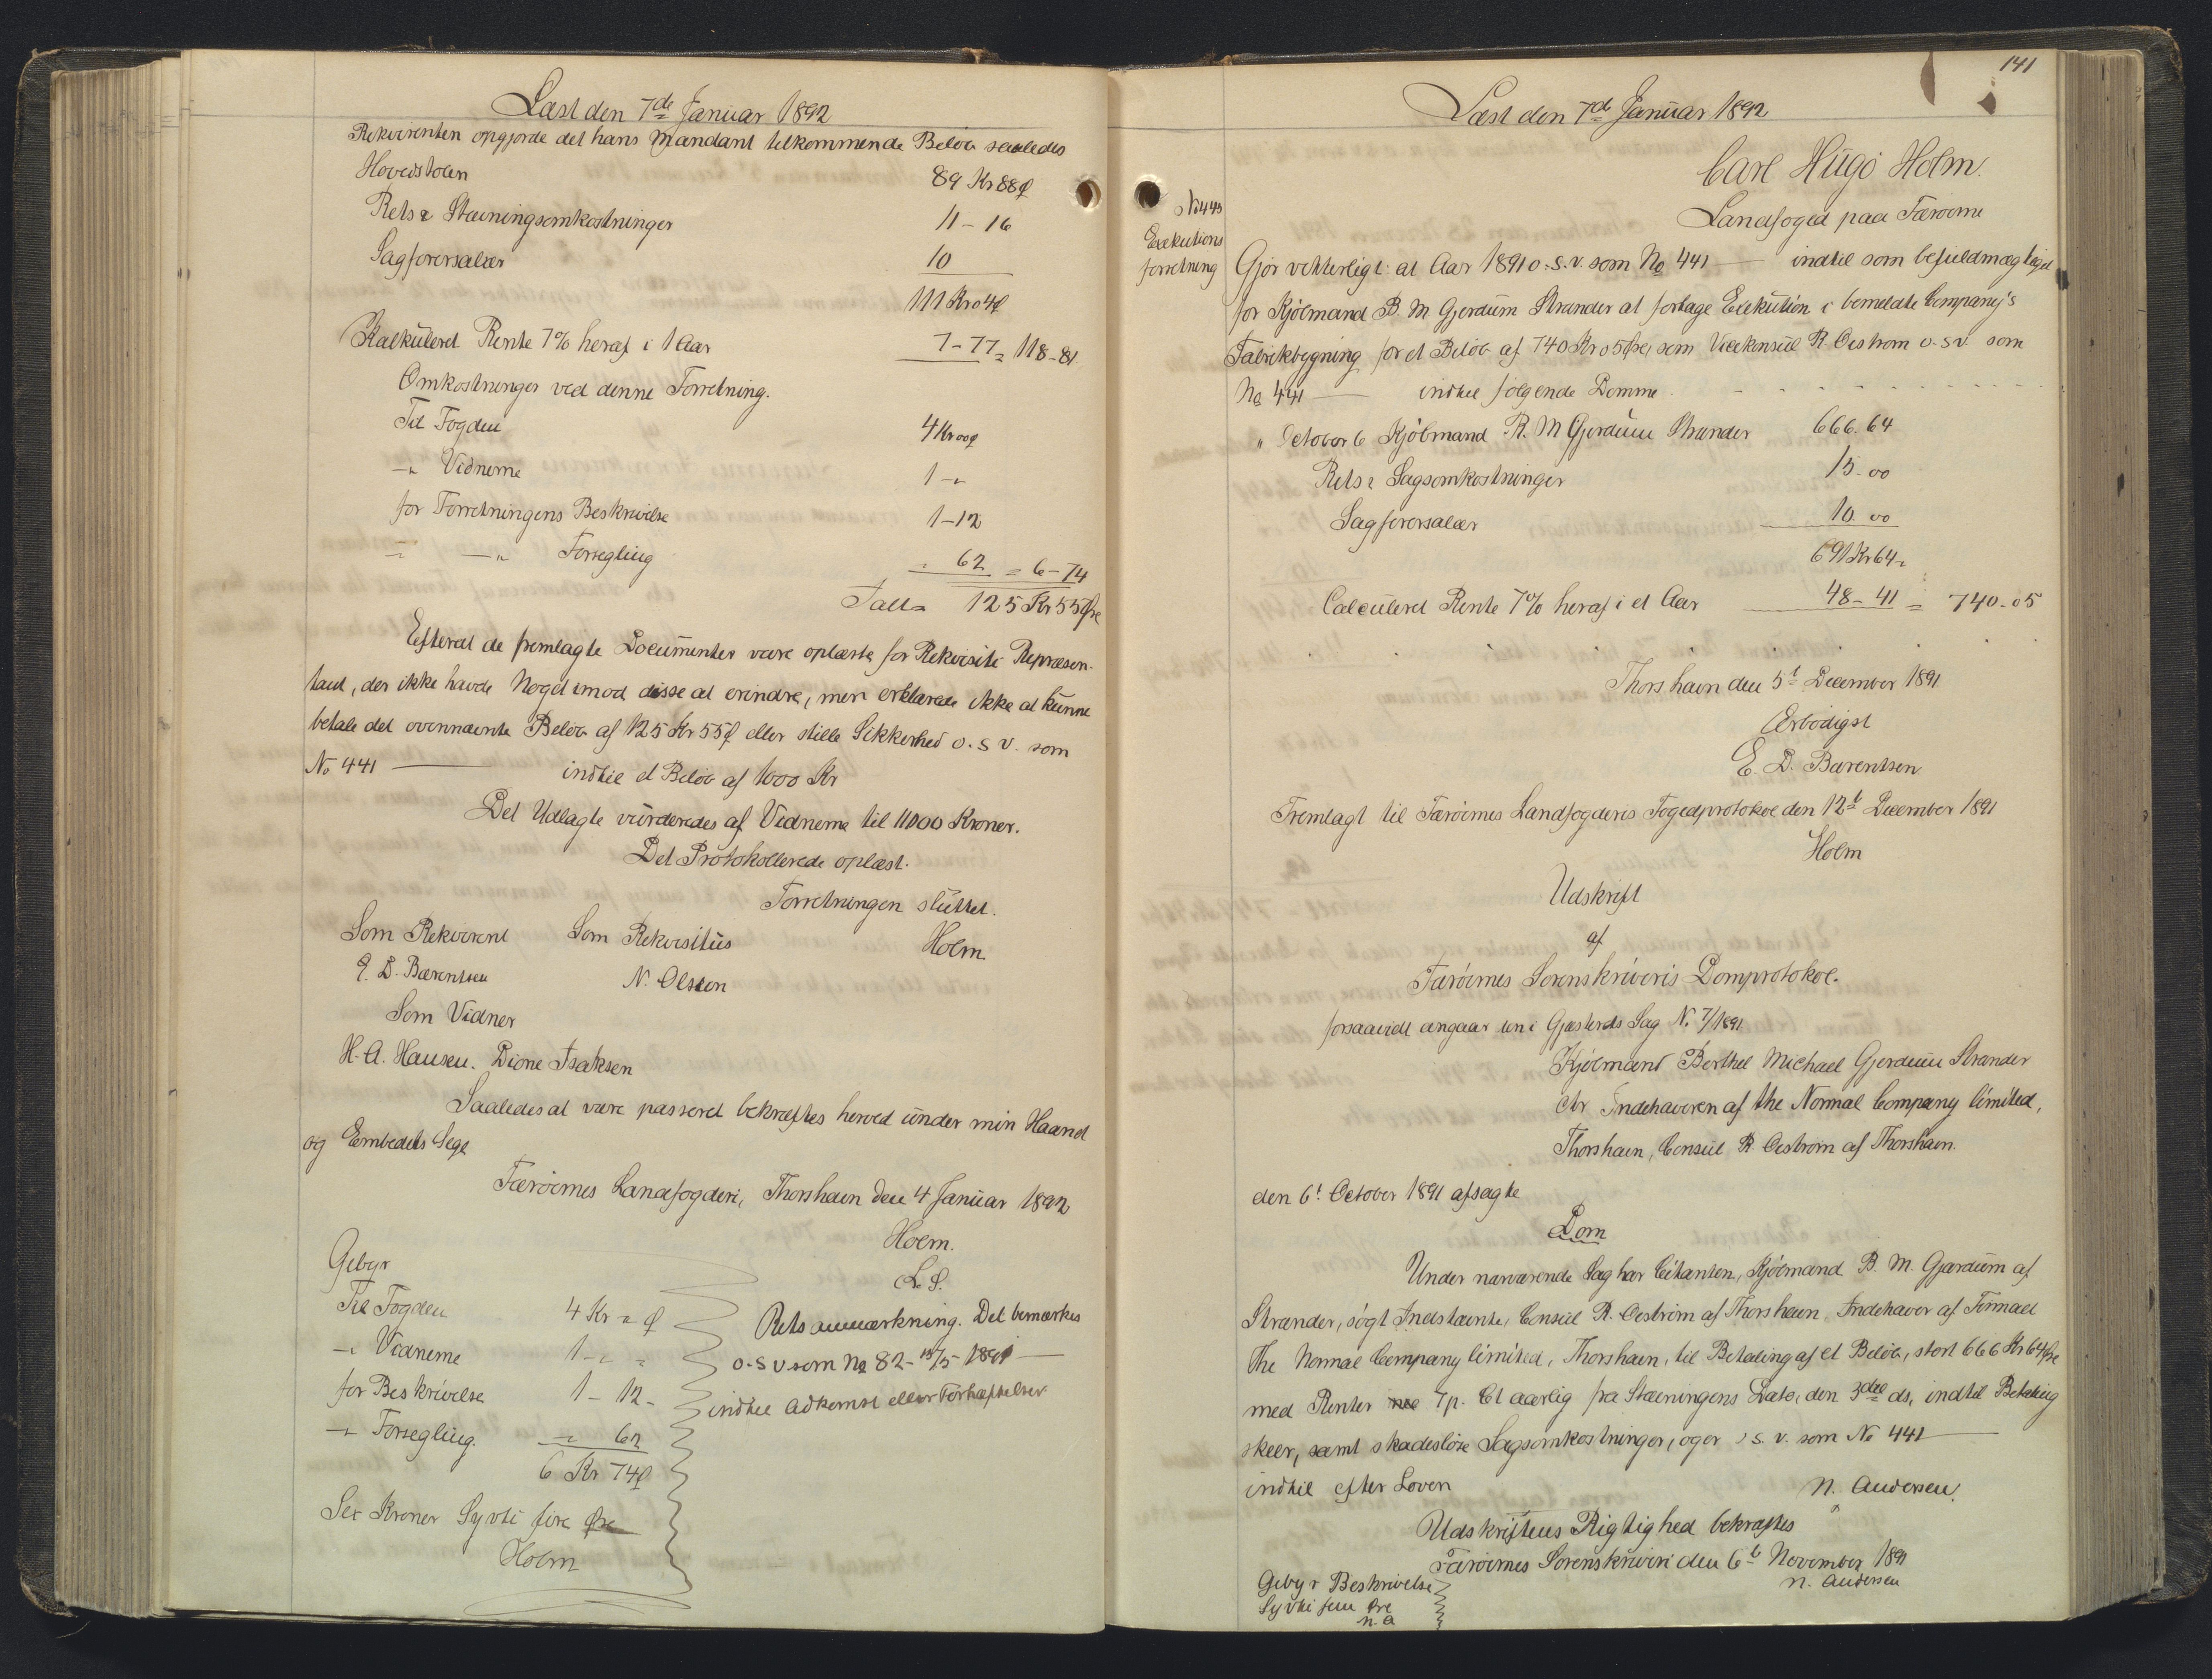 Læst den 7de Januar 1892
Rekvirenten opgjorde det hans Mandant tilkommende Beløb saaledes
Hovedstolen 89 Kr 88 ø
Rets & Stævningsomkostninger 11 - 16
Sagførersalær 10
111 Kr 04 ø
Kalkuleret Rente 7% heraf i 1 Aar 7 - 77 = 118 - 81
Omkostninger ved denne Forretning.
Til Fogden 4 Kr 00 ø
-"- Vidnerne 1 - "
for Forretningens Beskrivelse 1 - 12
" -"- Forsegling " 62 = 6 - 74
Ialt = 125 Kr 55 Øre
Efterat de fremlagte Documenter vare oplæste for Rekvisiti Repræsen-
tant, der ikke havde Noget imod disse at erindre, men erklærede ikke at kunne
betale det ovennævnte Beløb af 125 Kr 55 ø eller stille Sikkerhed o. s v. som
No 441 —— indtil et Beløb af 1000 Kr
Det Udlagte vurderedes af Vidnerne til 11000 Kroner.
Det Protokollerede oplæst.
Forretningen sluttet.
Som Rekvirent Som Rekvisitus Holm.
E. D. Bærentsen N. Olsen
Som Vidner
H. A. Hansen. Dione Isaksen
Saaledes at være passeret bekræftes herved under min Haand
og Embedets Segl
Færøernes Landfogderi, Thorshavn den 4 Januar 1892
Holm.
L. S.
Gebyr
Til Fogden 4 Kr " ø
-"- Vidnerne 1 - " "
for Beskrivelse 1 - 12 -
-"- Forsegling. -"- 62
6 Kr 74 ø
Sex Kroner Syvti fire Øre
Holm
Retsanmærkning. Det bemærkes
o. s v som No 82 - 15/5 1891 —
indtil Adkomst eller Forhæftelser
141
Læst den 7de Januar 1892
No 443
Exekutions
forretning
Carl Hugo Holm.
Landfoged paa Færøerne
Gjør vitterligt: at Aar 1891 o. s. v. som No 441 —— indtil som befuldmægtiget
for Kjøbmand B. M. Gjerdum Strander at foretage Exekution i bemeldte Company's
Fabrikbygning for et Beløb af 740 Kr 05 Øre, som Vicekonsul R. Oestrom o. s v som
No 441 —— indtil følgende Domme
" October 6 Kjøbmand B. M Gjerdum Strander 666. 64
Rets & Sagsomkostninger 15 - 00
Sagførersalær 10. 00
691 Kr 64 "
Calculeret Rente 7% heraf i et Aar 48 - 41 = 740 - 05
Thorshavn den 5t December 1891
Ærbødigst
E. D. Bærentsen
Fremlagt til Færøernes Landfogderis Fogedprotokol den 12t December 1891
Holm
Udskrift
af
Færøernes Sorenskriveris Domprotokol.
forsaavidt angaar den i Gjæsterets Sag No 7/1891
Kjøbmand Berthel Michael Gjerdum Strander
ctr Indehaveren af the Normal Company limited,
Thorshavn, Consul R. Oestrøm af Thorshavn.
den 6t October 1891 afsagte
Dom
Under nærværende Sag har Citanten, Kjøbmand B. M. Gjerdum af
Strander, søgt Indstævnte, Consul R. Oestrøm af Thorshavn, Indehaver af Firmaet
The Normal Company limited, Thorshavn, til Betaling af et Beløb, stort 666 Kr 64 Øre
med Renter 7 p. Ct aarlig fra Stævningens Dato, den 3die ds, indtil Betaling
skeer, samt skadesløse Sagsomkostninger, og er o s. v. som No 441 ——
indtil efter Loven
N. Andersen.
Udskriftens Rigtighed bekræftes
Færøernes Sorenskriveri den 6t November 1891
N. Andersen
Gebyr Beskrivelse
Syvti fem Øre
N. A